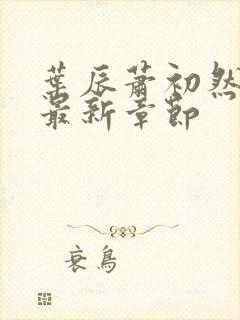 葉辰蕭初然
最新章節
衰鳥